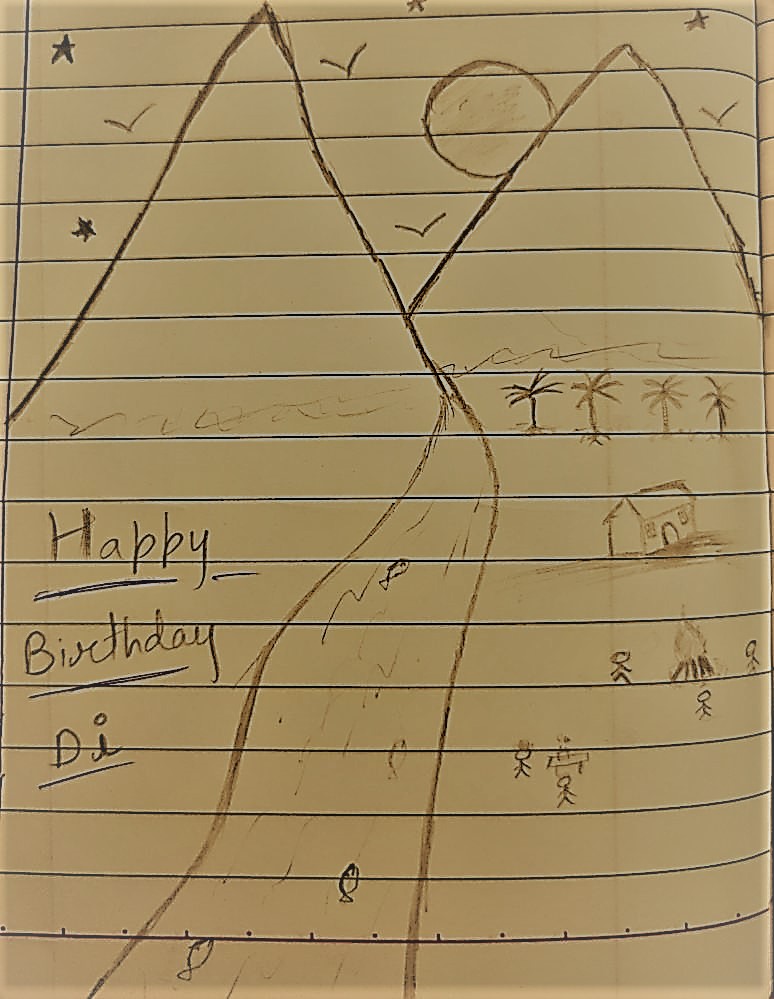 Happy
Birthday
Di